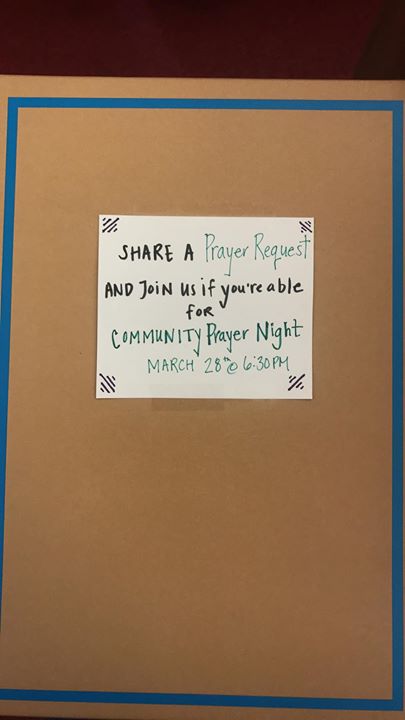 SHARE A Prayer Request
AND JOIN US if you're able
FOR
COMMUNITY Prayer Night
MARCH 28th @ 6:30PM